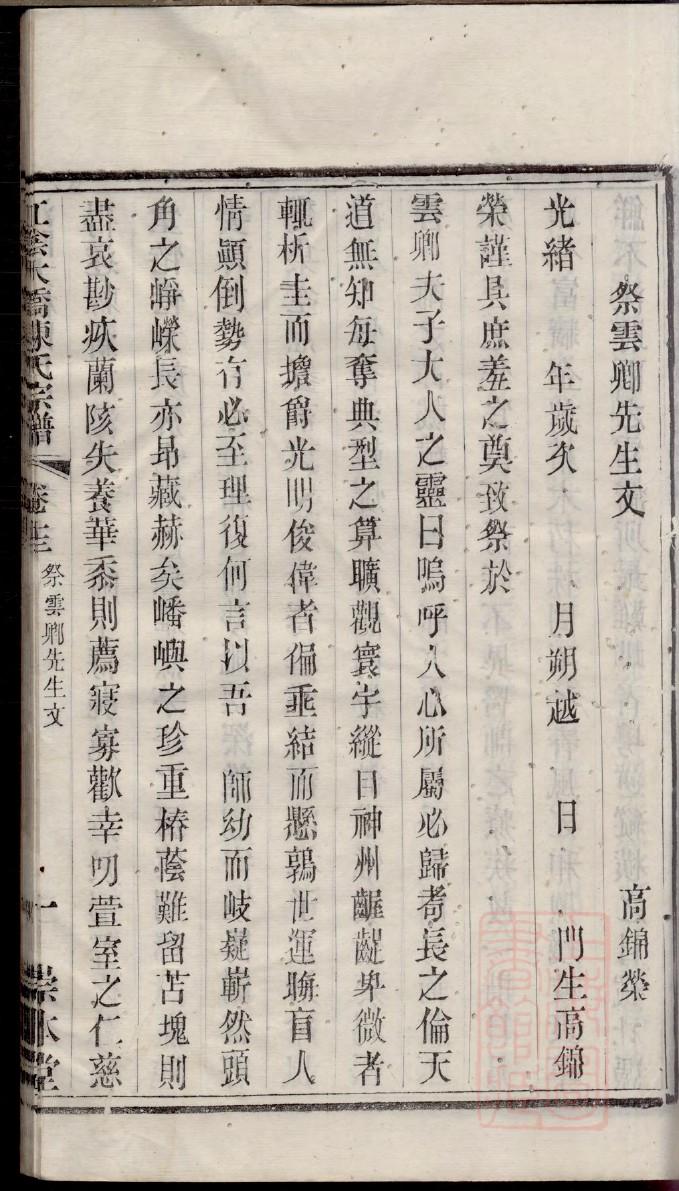 祭雲卿先生文　高錦榮
光緒　年歲次　月朔越　日　門生高錦
榮謹具庶羞之奠致祭於
雲卿夫子大人之靈曰嗚呼人心所屬必歸耆長之倫天
道無知每奪典型之算曠觀寰宇縱目神州齷齪卑微者
輒析圭而擔爵光明俊偉者偏垂結而懸鶉世運聯盲人
情顚倒勢有必至理復何言以吾　師幼而岐嶷嶄然頭
角之崢嶸長亦昂藏赫矣嶓嶼之珍重椿蔭難留苫塊則
盡哀尠疚蘭陔失養華黍則薦寢寡歡幸叨萱室之仁慈
江陰大橋陳氏宗譜　卷十三　祭雲卿先生文　一　崇本堂